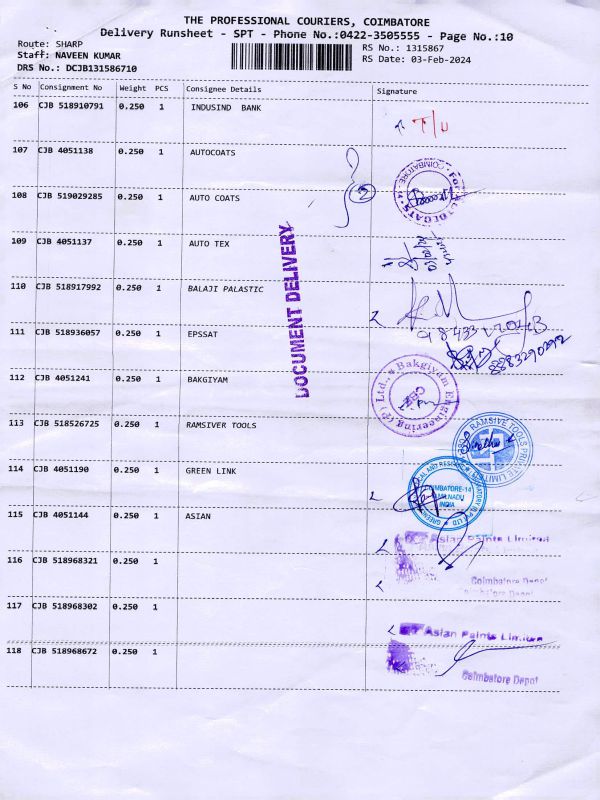 THE PROFESSIONAL COURIERS, COIMBATORE
Delivery Runsheet - SPT - Phone No.:0422-3505555 - Page No.:10
Route: SHARP
Staff: NAVEEN KUMAR
DRS No.: DCJB131586710
RS No.: 1315867
RS Date: 03-Feb-2024
S No Consignment No Weight PCS Consignee Details Signature
106 CJB 518910791 0.250 1 INDUSIND BANK
T/U
107 CJB 4051138 0.250 1 AUTOCOATS
COIMBATORE - 14
2
108 CJB 519029285 0.250 1 AUTO COATS
109 CJB 4051137 0.250 1 AUTO TEX
DOCUMENT DELIVERY
110 CJB 518917992 0.250 1 BALAJI PALASTIC
111 CJB 518936057 0.250 1 EPSSAT
8883290292
112 CJB 4051241 0.250 1 BAKGIYAM
Bakgiyam Engineering (P) Ltd.,
CBE
113 CJB 518526725 0.250 1 RAMSIVER TOOLS
RAMSIVE TOOLS PRIVATE LIMIT
114 CJB 4051190 0.250 1 GREEN LINK
COIMBATORE-14
TAMILNADU
INDIA
115 CJB 4051144 0.250 1 ASIAN
Asian Paints Limited
116 CJB 518968321 0.250 1
Coimbatore Depot
Coimbatore Depot
117 CJB 518968302 0.250 1
Asian Paints Limited
118 CJB 518968672 0.250 1
Coimbatore Depot